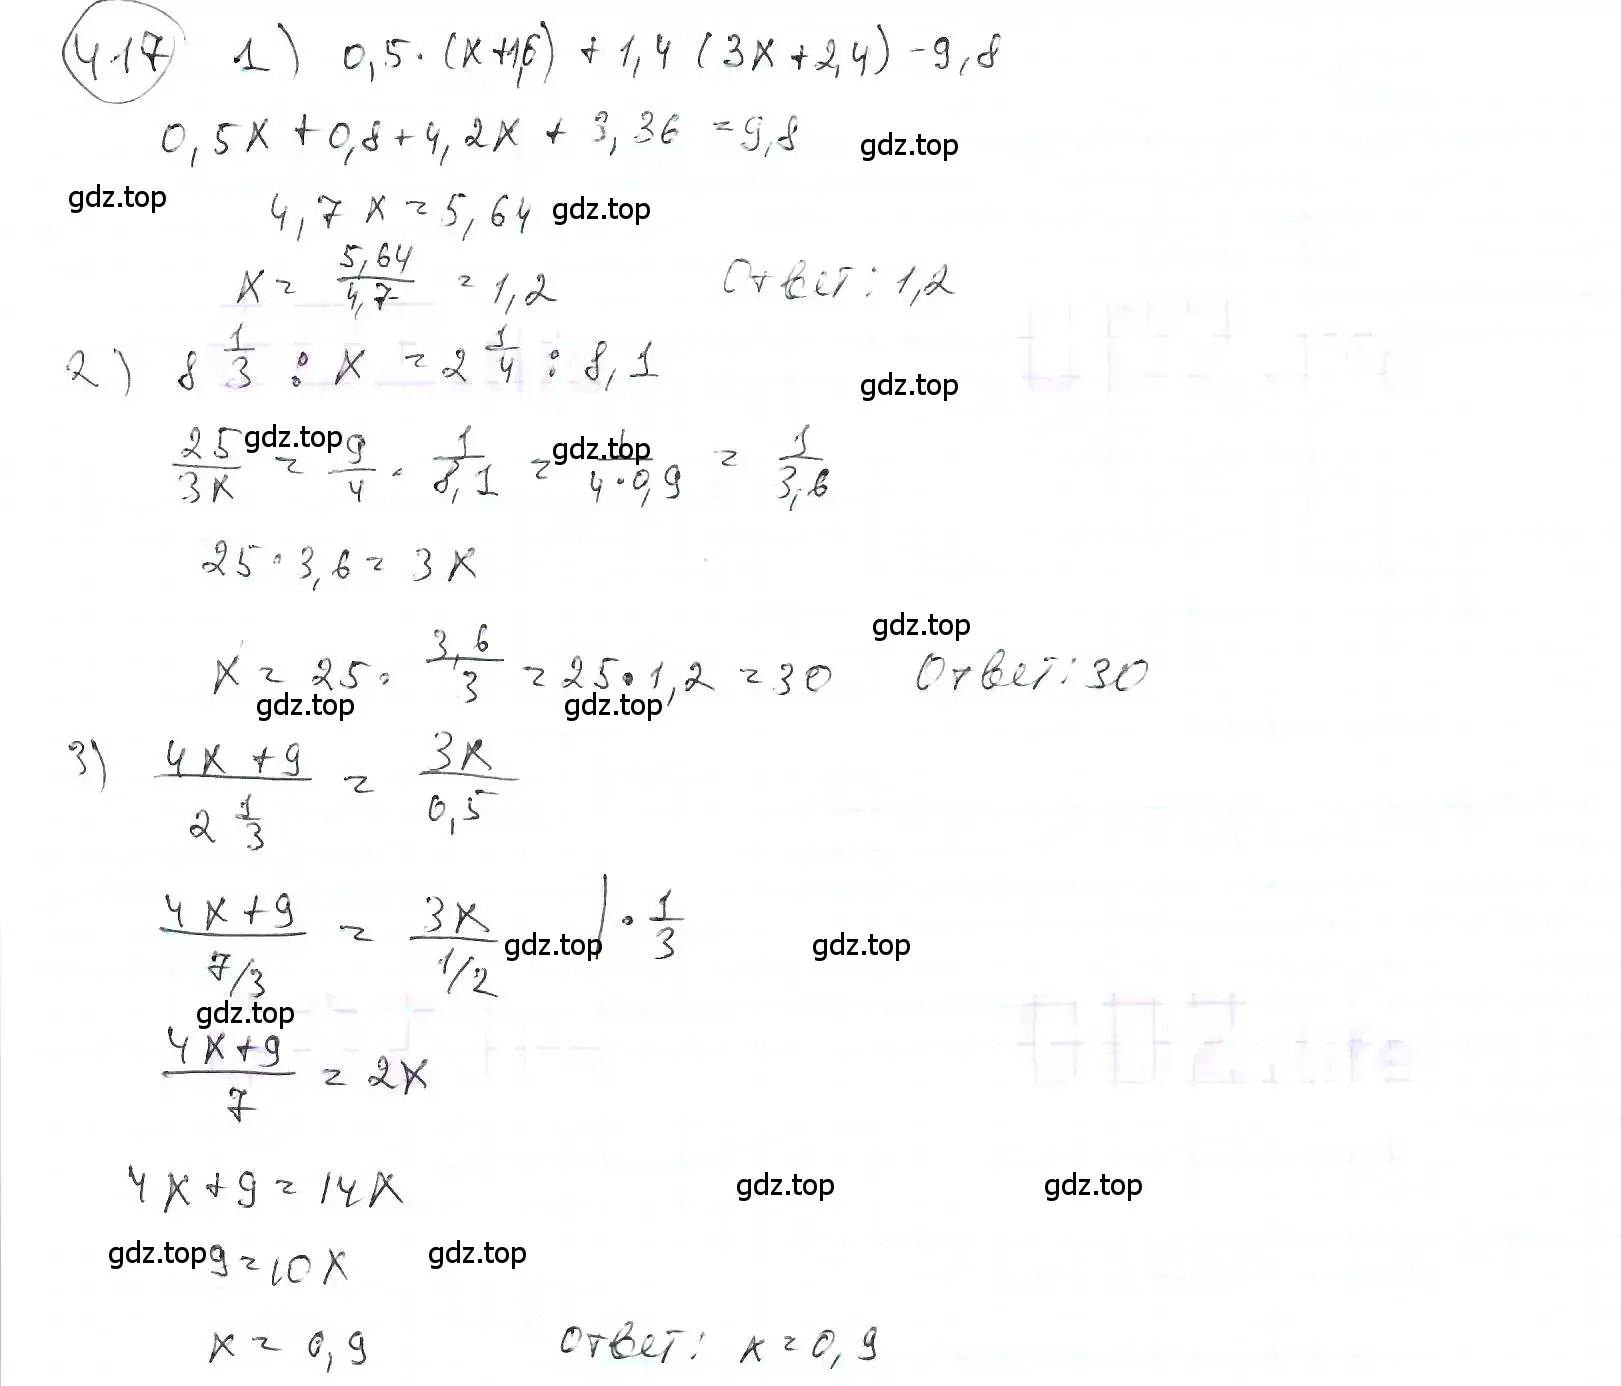 417 1) 0,5·(x+1,6)+1,4(3x+2,4)-9,8
0,5x+0,8+4,2x+3,36=9,8 gdz.top
gdz.top 4,7x=5,64 gdz.top
x=5,64/4,7=1,2 Ответ: 1,2
2) 8 1/3 : x = 2 1/4 : 8,1 gdz.top
25/3x gdz.top = 9/4 · 1/8,1 = gdz.top /4·0,9 = 1/3,6
25·3,6=3x
gdz.top
x=25·3,6/3=25·1,2=30 Ответ: 30
gdz.top gdz.top
3) 4x+9/2 1/3 = 3x/0,5
4x+9/7/3 = 3x/1/2 gdz.top |·1/3 gdz.top
gdz.top
4x+9/7 = 2x
4x+9=14x gdz.top gdz.top
gdz.top 9=10x gdz.top
x=0,9 Ответ: x=0,9
GDZ.life